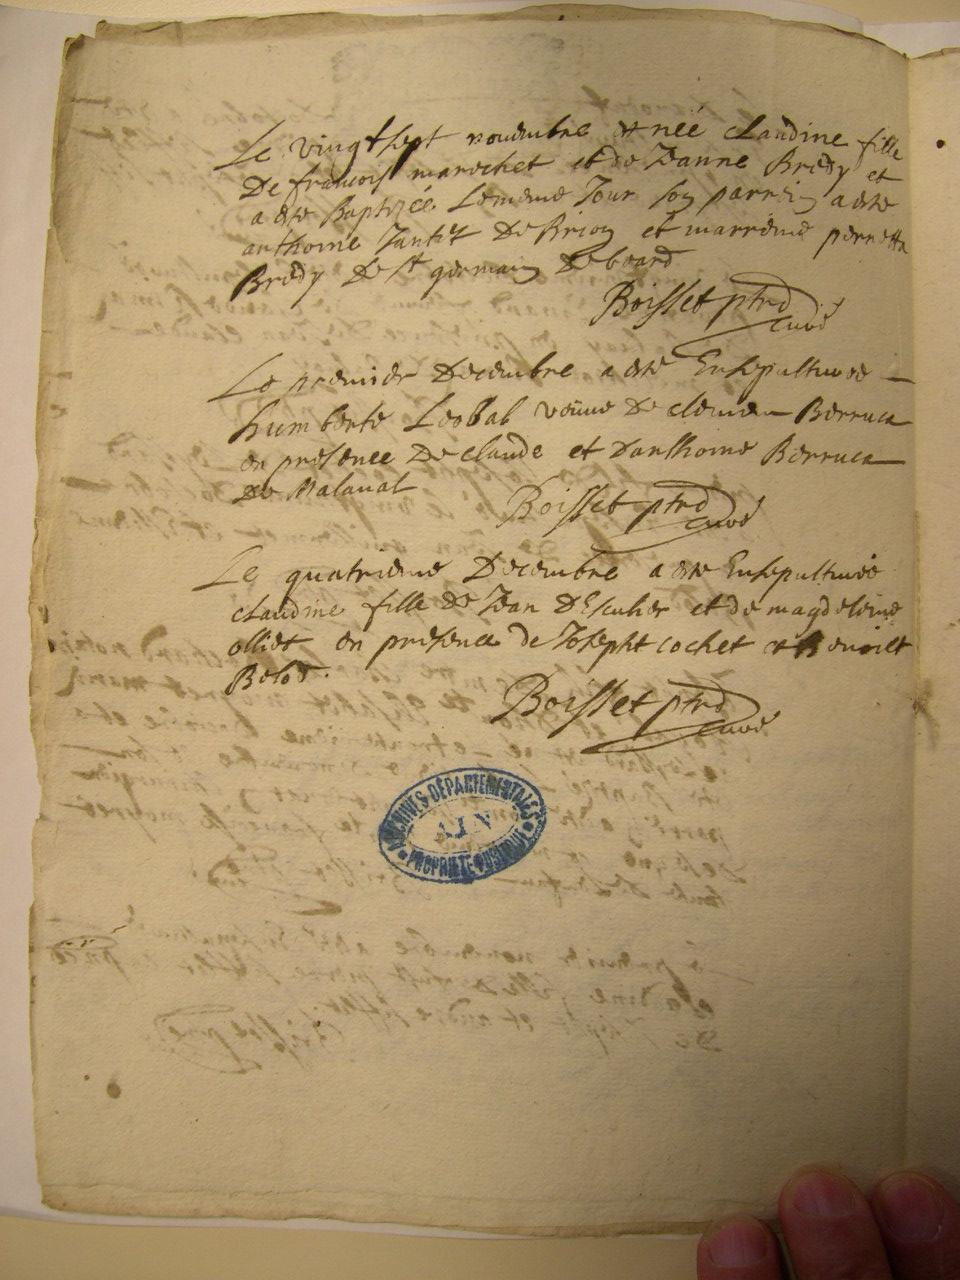 Le vingt sept novembre est née claudine fille
De francois marechet et de Jeanne Bredy et
a este Baptizée Le meme Jour son parrein a este
anthoine Tantet De Brion et marreine perrette
Bredy De st germain De beard
Boisset ptre
curé
Le premier Decembre a este Ensepulturee
humberte veuve De clemen Berruca
en presence De claude et D'anthoine Berruca
De Malaval
Boisset ptre
curé
Le quatrieme Decembre a este Ensepulturée
claudine fille De Jean D'Esculier et de magdeleine
olliet en presence de Joseph cochet et Benoist
Belod.
Boisset ptre
curé
ARCHIVES DÉPARTEMENTALES
AIN
PROPRIÉTÉ PUBLIQUE